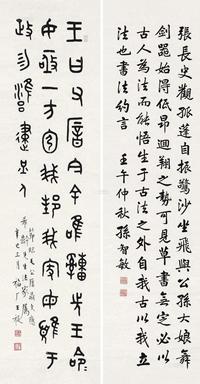 張長史觀孤蓬自振驚沙坐飛與公孫大娘舞
劍器始得低昂迴翔之勢可見草書無定必以
古人為法而能悟生于古法之外自我古以我立
法也書法約言 壬午仲秋孫智敏
王曰父𢉼今余唯先王命
女亟一方我邦我家毋于
政勿雝建